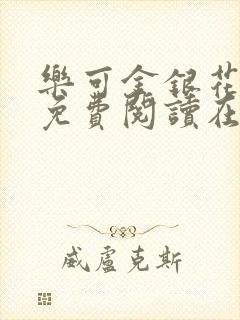 樂可金銀花
免費閱讀在
威盧克斯